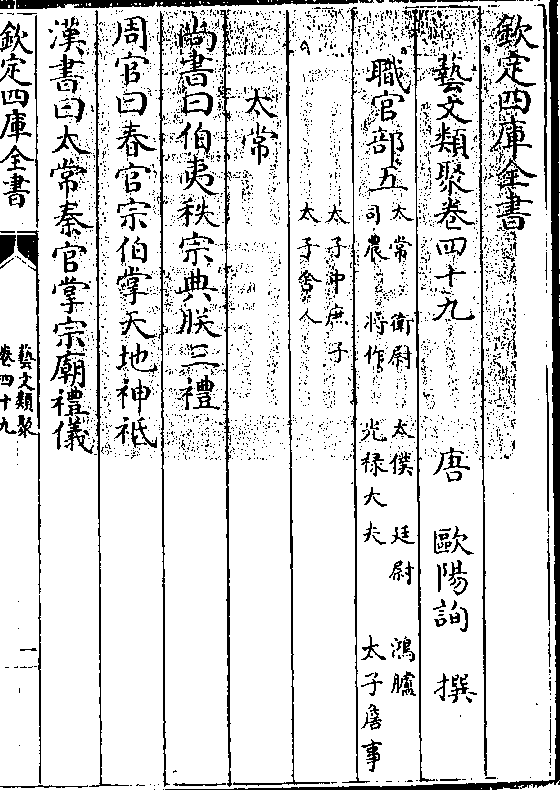 欽定四庫全書
藝文類聚卷四十九
唐 歐陽詢 撰
職官部五
太常 衛尉 太僕 廷尉 鴻臚
司農 將作 光祿大夫 太子詹事
太子中庶子
太子舍人
太常
尚書曰伯夷秩宗典朕三禮
周官曰春官宗伯掌天地神祇
漢書曰太常秦官掌宗廟禮儀
欽定四庫全書
藝文類聚
卷四十九
一